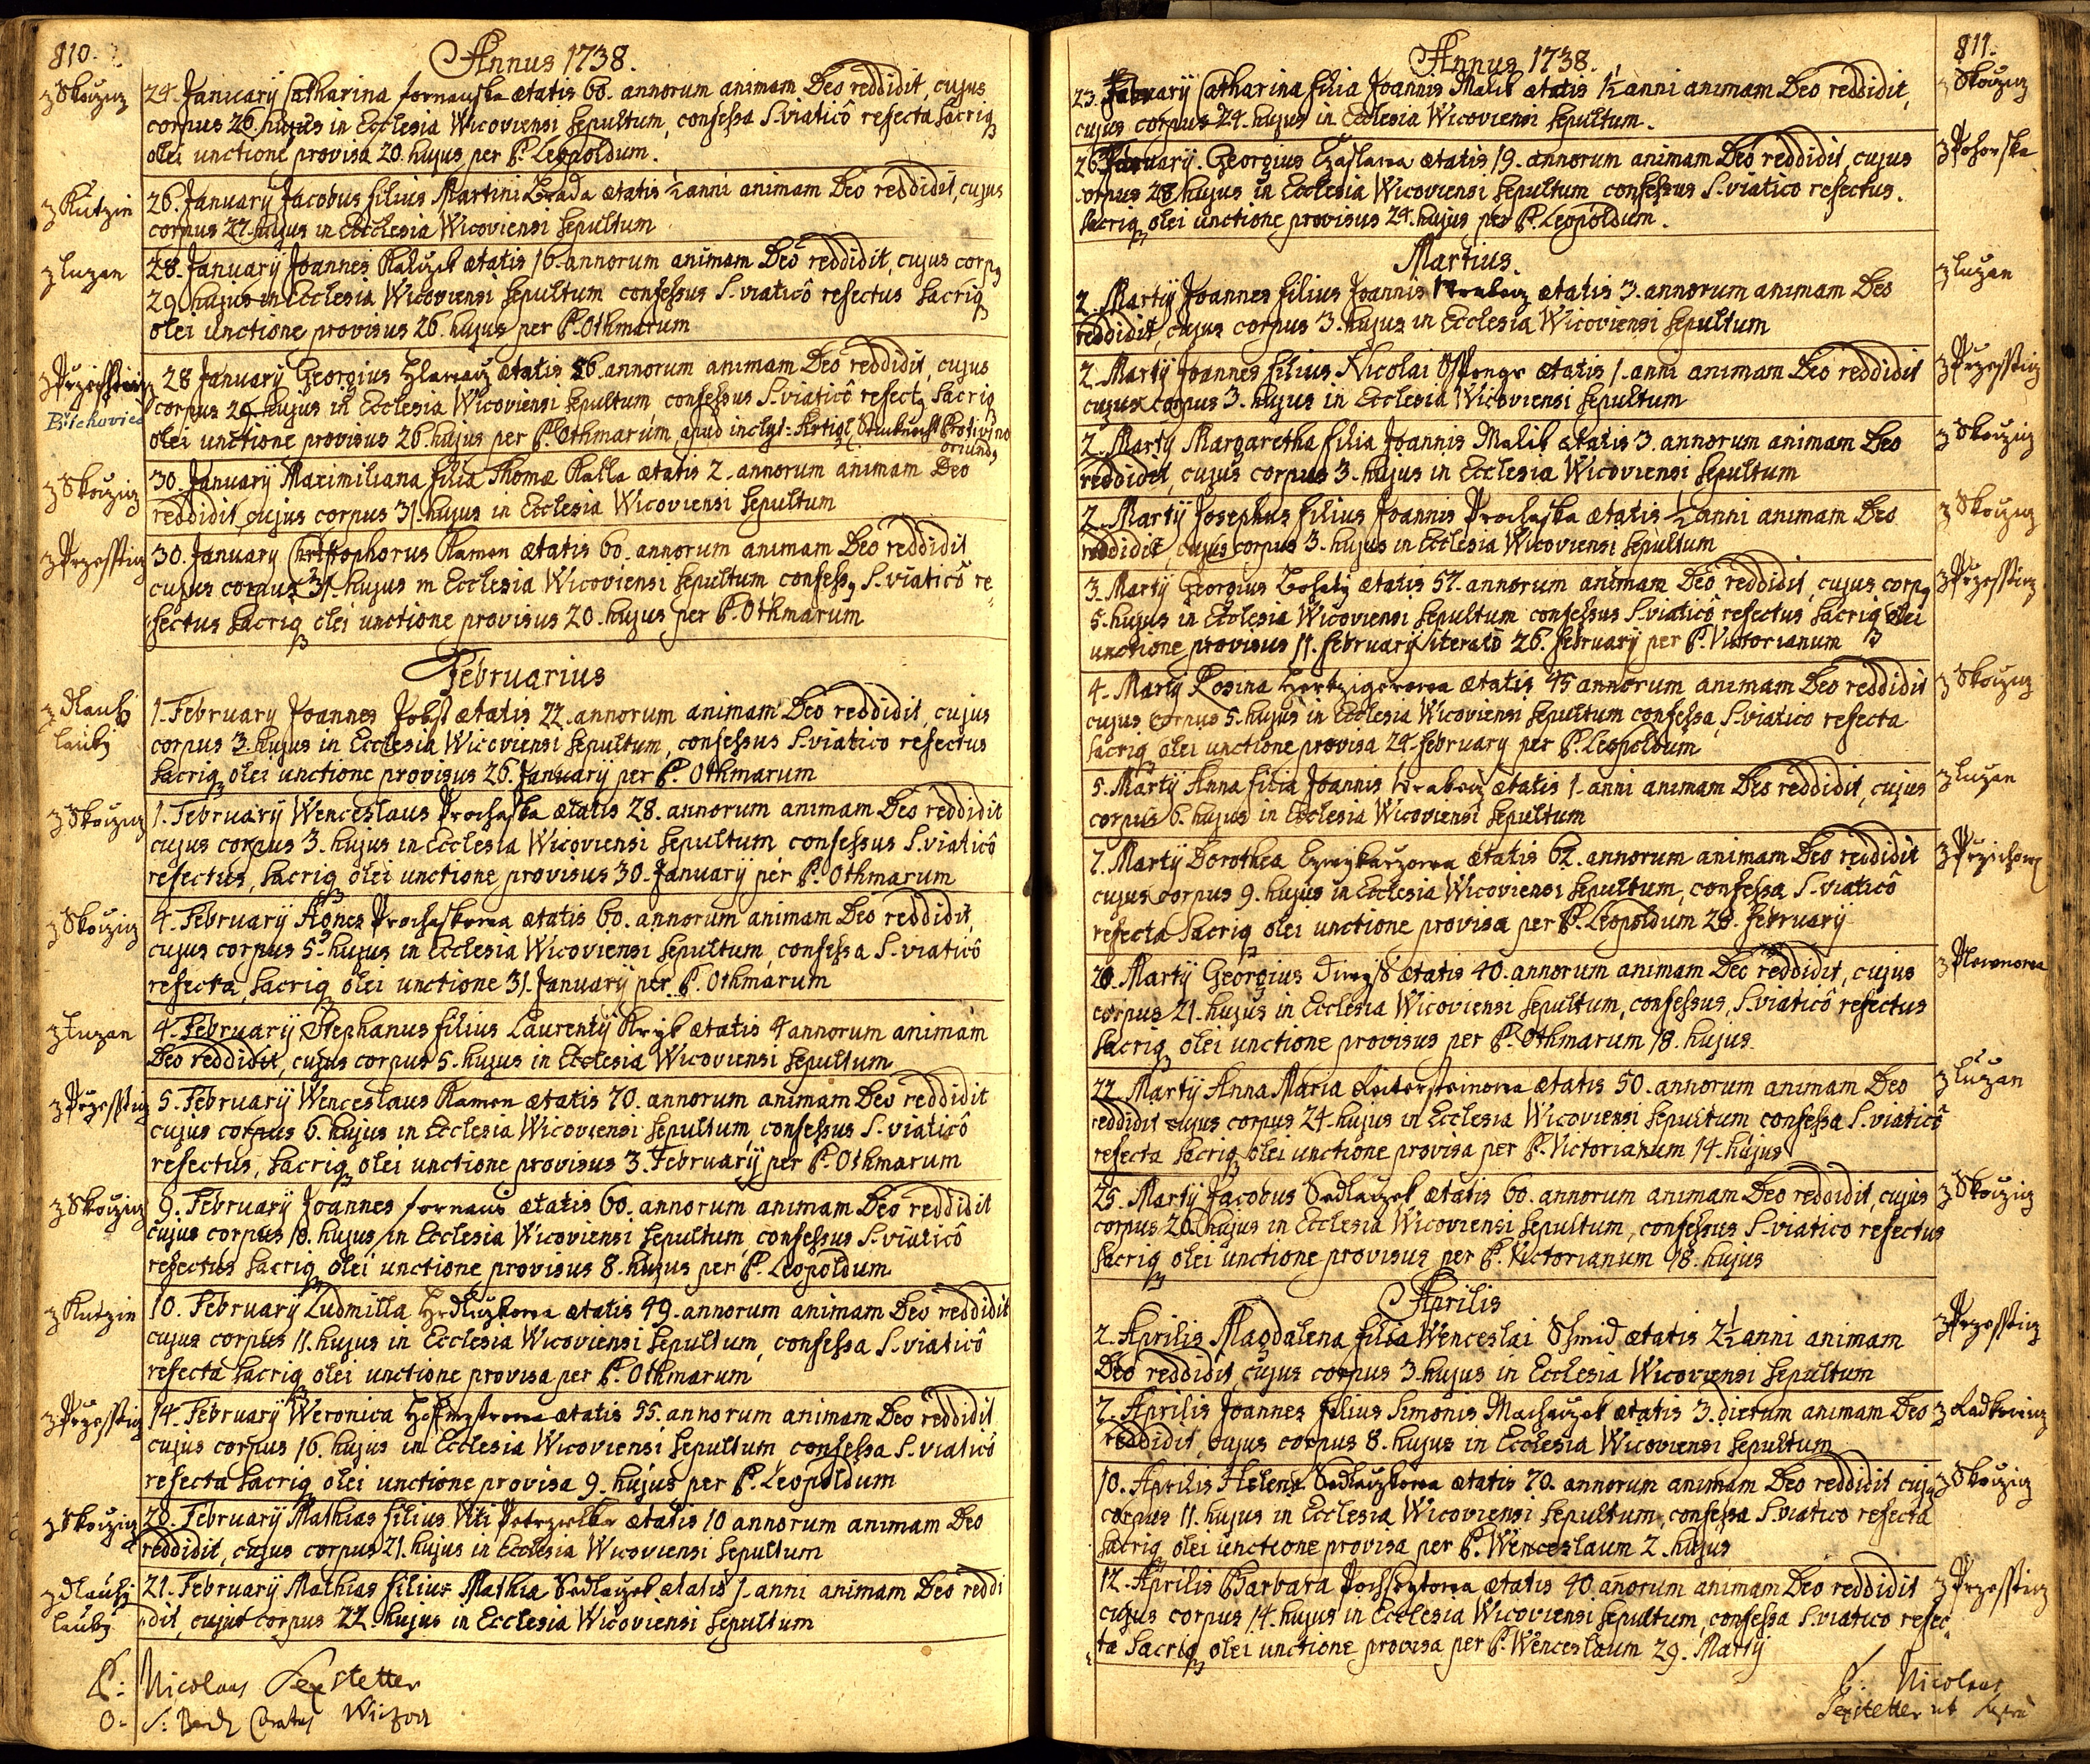 810.
Annus 1738.
z Skoczicz
24. January Catharina fornauska ætatis 60. annorum animam Deo reddidit, cujus
corpus 26. hujus in Ecclesia Wicoviensi sepultum, confessa S. viaticô refecta sacriq
olei unctione provisa 20. hujus per P. Leopoldum.
z Kutzin
26. January Jacobus filius Martini Brada ætatis ½ anni animam Deo reddidit, cujus
corpus 27. hujus in Ecclesia Wicoviensi sepultum
z luzan
28. January Joannes ætatis 16. annorum animam Deo reddidit, cujus corp9
29. hujus in Ecclesia Wicoviensi sepultum confessus S. viaticô refectus sacriq
olei unctione provisus 26. hujus per P. Othmarum
Břichovice
28 January Georgius ætatis 56. annorum animam Deo reddidit, cujus
corpus 29. hujus in Ecclesia Wicoviensi sepultum, confessus S. viaticô refect9 sacriq
olei unctione provisus 26. hujus per P. Othmarum apud inclyt: Protivino
oriund9
z Skoczicz
30. January Maximiliana filia Thomæ Kalla ætatis 2. annorum animam Deo
reddidit, cujus corpus 31. hujus in Ecclesia Wicoviensi sepultum
z Przessticz
30. January Christophorus Kamen ætatis 60. annorum animam Deo reddidit
cujus corpus 31. hujus in Ecclesia Wicoviensi sepultum confess9 S. viaticô re=
fectus sacriq olei unctione provisus 20. hujus per P. Othmarum
Februarius
z dlauhi
lauky
1. February Joannes Jobst ætatis 22. annorum animam Deo reddidit, cujus
corpus 3. hujus in Ecclesia Wicoviensi sepultum, confessus S. viatico refectus
sacriq olei unctione provisus 26. January per P. Othmarum
z Skoczicz
1. February Wenceslaus Prochaska ætatis 28. annorum animam Deo reddidit
cujus corpus 3. hujus in Ecclesia Wicoviensi sepultum confessus S. viaticô
refectus, sacriq olei unctione provisus 30. January per P. Othmarum
z Skoczicz
4. February Agnes Prochaskowa ætatis 60. annorum animam Deo reddidit,
cujus corpus 5. hujus in Ecclesia Wicoviensi sepultum, confessa S. viaticô
refecta, sacriq olei unctione 31. January per P. Othmarum
z luzan
4. February Stephanus filius Laurenty ætatis 4 annorum animam
Deo reddidit, cujus corpus 5. hujus in Ecclesia Wicoviensi sepultum
z Przessticz
5. February Wenceslaus Kamen ætatis 70. annorum animam Deo reddidit
cujus corpus 6. hujus in Ecclesia Wicoviensi sepultum, confessus S. viaticô
refectus, sacriq olei unctione provisus 3. February per P. Othmarum
z Skoczicz
9. February Joannes fornaus ætatis 60. annorum animam Deo reddidit
cujus corpus 10. hujus in Ecclesia Wicoviensi sepultum, confessus S. viaticô
refectus sacriq olei unctione provisus 8. hujus per P. Leopoldum
z Kutzin
10. February Ludmilla ætatis 49. annorum animam Deo reddidit
cujus corpus 11. hujus in Ecclesia Wicoviensi sepultum, confessa S. viaticô
refecta sacriq olei unctione provisa per P. Othmarum
z Przessticz
14. February Weronica ætatis 55. annorum animam Deo reddidit
cujus corpus 16. hujus in Ecclesia Wicoviensi sepultum confessa S. viaticô
refecta sacriq olei unctione provisa 9. hujus per P. Leopoldum
z Skoczicz
20. February Mathias filius Viti Petrzelka ætatis 10 annorum animam Deo
reddidit, cujus corpus 21. hujus in Ecclesia Wicoviensi sepultum
z dlauhi
lauky
21. February Mathias filius Mathiæ Sedlaczek ætatis 1. anni animam Deo reddi
dit, cujus corpus 22. hujus in Ecclesia Wicoviensi sepultum
P: Nicolaus Sexstetter
811.
Annus 1738.
z Skoczicz
23. February Catharina filia Joannis Malik ætatis 1½ anni animam Deo reddidit,
cujus corpus 24. hujus in Ecclesia Wicoviensi sepultum.
z Pohorska
26. February. Georgius Czaslawa ætatis 19. annorum animam Deo reddidit, cujus
corpus 28. hujus in Ecclesia Wicoviensi sepultum confessus S. viatico refectus.
sacriq olei unctione provisus 24. hujus per P. Leopoldum.
Martius.
z luzan
2. Marty Joannes filius Joannis ætatis 3. annorum animam Deo
reddidit, cujus corpus 3. hujus in Ecclesia Wicoviensi sepultum
z Przessticz
2. Marty Joannes filius Nicolai ætatis 1. anni animam Deo reddidit
cujus corpus 3. hujus in Ecclesia Wicoviensi sepultum
z Skoczicz
2. Marty Margaretha filia Joannis Malik ætatis 3. annorum animam Deo
reddidit, cujus corpus 3. hujus in Ecclesia Wicoviensi sepultum
z Skoczicz
2. Marty Josephus filius Joannis Prochaska ætatis ½ anni animam Deo
reddidit, cujus corpus 3. hujus in Ecclesia Wicoviensi sepultum
z Przessticz
3. Marty Georgius Bohaty ætatis 57. annorum animam Deo reddidit, cujus corp9
5. hujus in Ecclesia Wicoviensi sepultum confessus S. viaticô refectus sacriq olei
unctione provisus 11. february iteratô 26. february per P. Victorianum
z Skoczicz
4. Marty Rosina ætatis 45 annorum animam Deo reddidit
cujus corpus 5. hujus in Ecclesia Wicoviensi sepultum confessa, S. viatico refecta
sacriq olei unctione provisa 24. february per P. Leopoldum
z luzan
5. Marty Anna filia Joannis ætatis 1. anni animam Deo reddidit, cujus
corpus 6. hujus in Ecclesia Wicoviensi sepultum
7. Marty Dorothea ætatis 62. annorum animam Deo reddidit
cujus corpus 9. hujus in Ecclesia Wicoviensi sepultum, confessa S. viaticô
refecta sacriq olei unctione provisa per P. Leopoldum 28. february
20. Marty Georgius ætatis 40. annorum animam Deo reddidit, cujus
corpus 21. hujus in Ecclesia Wicoviensi sepultum, confessus, S. viaticô refectus
sacriq olei unctione provisus per P. Othmarum 18. hujus
z luzan
22. Marty Anna Maria ætatis 50. annorum animam Deo
reddidit cujus corpus 24. hujus in Ecclesia Wicoviensi sepultum confessa S. viaticô
refecta sacriq olei unctione provisa per P. Victorianum 14. hujus
z Skoczicz
25. Marty Jacobus Sedlaczek ætatis 60. annorum animam Deo reddidit, cujus
corpus 26. hujus in Ecclesia Wicoviensi sepultum, confessus S. viatico refectus
sacriq olei unctione provisus per P. Victorianum 18. hujus
Aprilis
z Przessticz
2. Aprilis Magdalena filia Wenceslai Schmid ætatis 2½ anni animam
Deo reddidit, cujus corpus 3. hujus in Ecclesia Wicoviensi sepultum
7. Aprilis Joannes filius Simonis Machaczek ætatis 3. dierum animam Deo
reddidit, cujus corpus 8. hujus in Ecclesia Wicoviensi sepultum
z Skoczicz
10. Aprilis Helena Sedlaczkowa ætatis 70. annorum animam Deo reddidit cuj9
corpus 11. hujus in Ecclesia Wicoviensi sepultum, confessa S. viatico refecta
sacriq olei unctione provisa per P. Wenceslaum 2. hujus
z Przessticz
12. Aprilis Barbara ætatis 40. añorum animam Deo reddidit
cujus corpus 14. hujus in Ecclesia Wicoviensi sepultum, confessa S. viatico refec=
ta sacriq olei unctione provisa per P. Wenceslaum 29. Marty
P: Nicolaus
Sexstetter ut supra